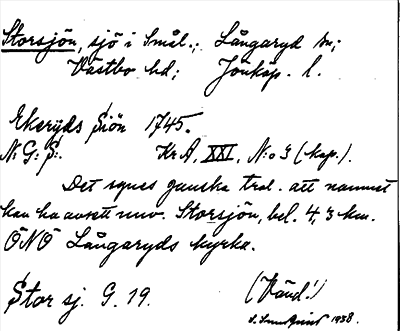 Storsjön, sjö i Smål.; Långaryd sn;
Västbo hd; Jönköp. l.
Ekeryds Siön 1745.
N: G: S:. KrA, XXI, N:o 3 (kap.).
Det synes ganska trol. att namnet
kan ha avsett nuv. Storsjön, bel. 4,3 km.
ÖNÖ Långaryds kyrka.
Stor sj. G. 19. (Vänd!)
1938.